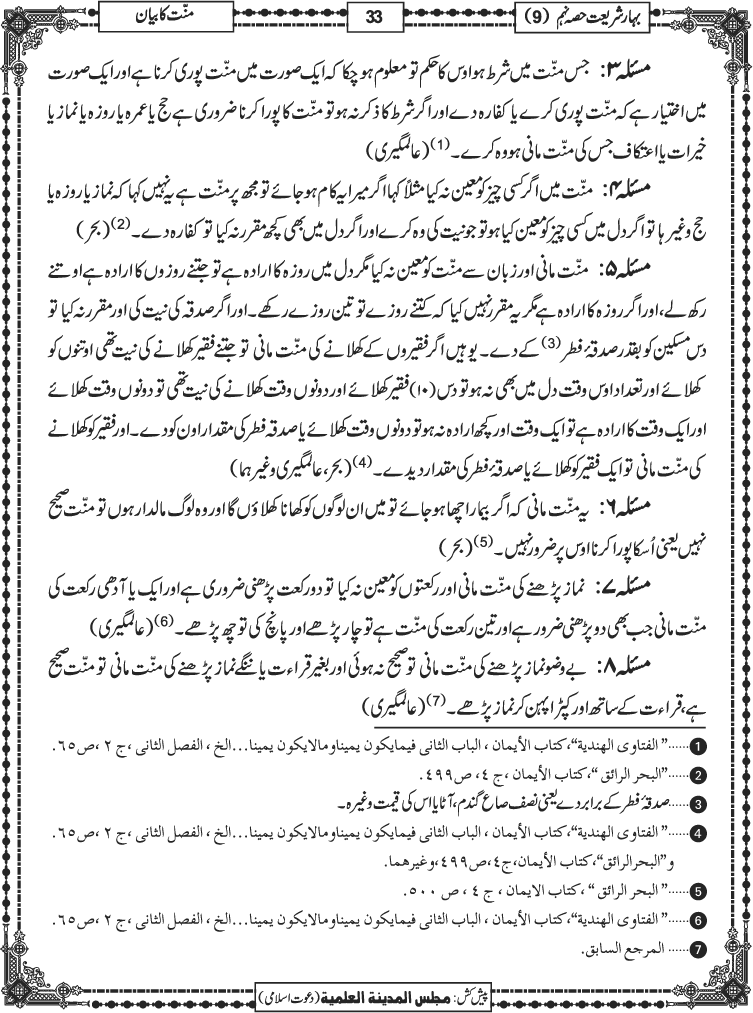 بہار شریعت حصہ نہم (9)
33
منّت کا بیان
مسئلہ ۳: جس منّت میں شرط ہو اوس کا حکم تو معلوم ہو چکا کہ ایک صورت میں منّت پوری کرنا ہے اور ایک صورت
میں اختیار ہے کہ منّت پوری کرے یا کفارہ دے اور اگر شرط کا ذکر نہ ہو تو منّت کا پورا کرنا ضروری ہے حج یا عمرہ یا روزہ یا نماز یا
خیرات یا اعتکاف جس کی منّت مانی ہو وہ کرے۔ (1) (عالمگیری)
مسئلہ ۴: منّت میں اگر کسی چیز کو معین نہ کیا مثلاً کہا اگر میرا یہ کام ہو جائے تو مجھ پر منّت ہے یہ نہیں کہا کہ نماز یا روزہ یا
حج وغیرہا تو اگر دل میں کسی چیز کو معین کیا ہو تو جو نیت کی وہ کرے اور اگر دل میں بھی کچھ مقرر نہ کیا تو کفارہ دے۔ (2) (بحر)
مسئلہ ۵: منّت مانی اور زبان سے منّت کو معین نہ کیا مگر دل میں روزہ کا ارادہ ہے تو جتنے روزوں کا ارادہ ہے اوتنے
رکھ لے، اور اگر روزہ کا ارادہ ہے مگر یہ مقرر نہیں کیا کہ کتنے روزے تو تین روزے رکھے۔ اور اگر صدقہ کی نیت کی اور مقرر نہ کیا تو
دس مسکین کو بقدر صدقۂ فطر (3) کے دے۔ یو ہیں اگر فقیروں کے کھلانے کی منّت مانی تو جتنے فقیر کھلانے کی نیت تھی اوتنوں کو
کھلائے اور تعداد اوس وقت دل میں بھی نہ ہو تو دس (۱۰) فقیر کھلائے اور دونوں وقت کھلانے کی نیت تھی تو دونوں وقت کھلائے
اور ایک وقت کا ارادہ ہے تو ایک وقت اور کچھ ارادہ نہ ہو تو دونوں وقت کھلائے یا صدقہ فطر کی مقدار اون کو دے۔ اور فقیر کو کھلانے
کی منّت مانی تو ایک فقیر کو کھلائے یا صدقۂ فطر کی مقدار دیدے۔ (4) (بحر، عالمگیری وغیرہما)
مسئلہ ۶: یہ منّت مانی کہ اگر بیمار اچھا ہو جائے تو میں ان لوگوں کو کھانا کھلاؤں گا اور وہ لوگ مالدار ہوں تو منّت صحیح
نہیں یعنی اُسکا پورا کرنا اوس پر ضرور نہیں۔ (5) (بحر)
مسئلہ ۷: نماز پڑھنے کی منّت مانی اور رکعتوں کو معین نہ کیا تو دو رکعت پڑھنی ضروری ہے اور ایک یا آدھی رکعت کی
منّت مانی جب بھی دو پڑھنی ضرور ہے اور تین رکعت کی منّت ہے تو چار پڑھے اور پانچ کی تو چھ پڑھے۔ (6) (عالمگیری)
مسئلہ ۸: بے وضو نماز پڑھنے کی منّت مانی تو صحیح نہ ہوئی اور بغیر قراءت یا ننگے نماز پڑھنے کی منّت مانی تو منّت صحیح
ہے، قراءت کے ساتھ اور کپڑا پہن کر نماز پڑھے۔ (7) (عالمگیری)
1 ......”الفتاوى الهندية“، كتاب الأيمان، الباب الثانى فيمايكون يميناومالايكون يمينا...الخ، الفصل الثانى، ج ٢، ص٦٥.
2 ......”البحر الرائق“، كتاب الأيمان، ج ٤، ص٤٩٩.
3 ......صدقۂ فطر کے برابر دے یعنی نصف صاع گندم، آٹا یا اس کی قیمت وغیرہ۔
4 ......”الفتاوى الهندية“، كتاب الأيمان، الباب الثانى فيمايكون يميناومالايكون يمينا...الخ، الفصل الثانى، ج ٢، ص٦٥.
و”البحرالرائق“، كتاب الأيمان، ج٤، ص٤٩٩، وغيرهما.
5 ......”البحر الرائق“، كتاب الايمان، ج ٤، ص ٥٠٠.
6 ......”الفتاوى الهندية“، كتاب الأيمان، الباب الثانى فيمايكون يميناومالايكون يمينا...الخ، الفصل الثانى، ج ٢، ص٦٥.
7 ......المرجع السابق.
پیش کش: مجلس المدينة العلمية (دعوت اسلامی)